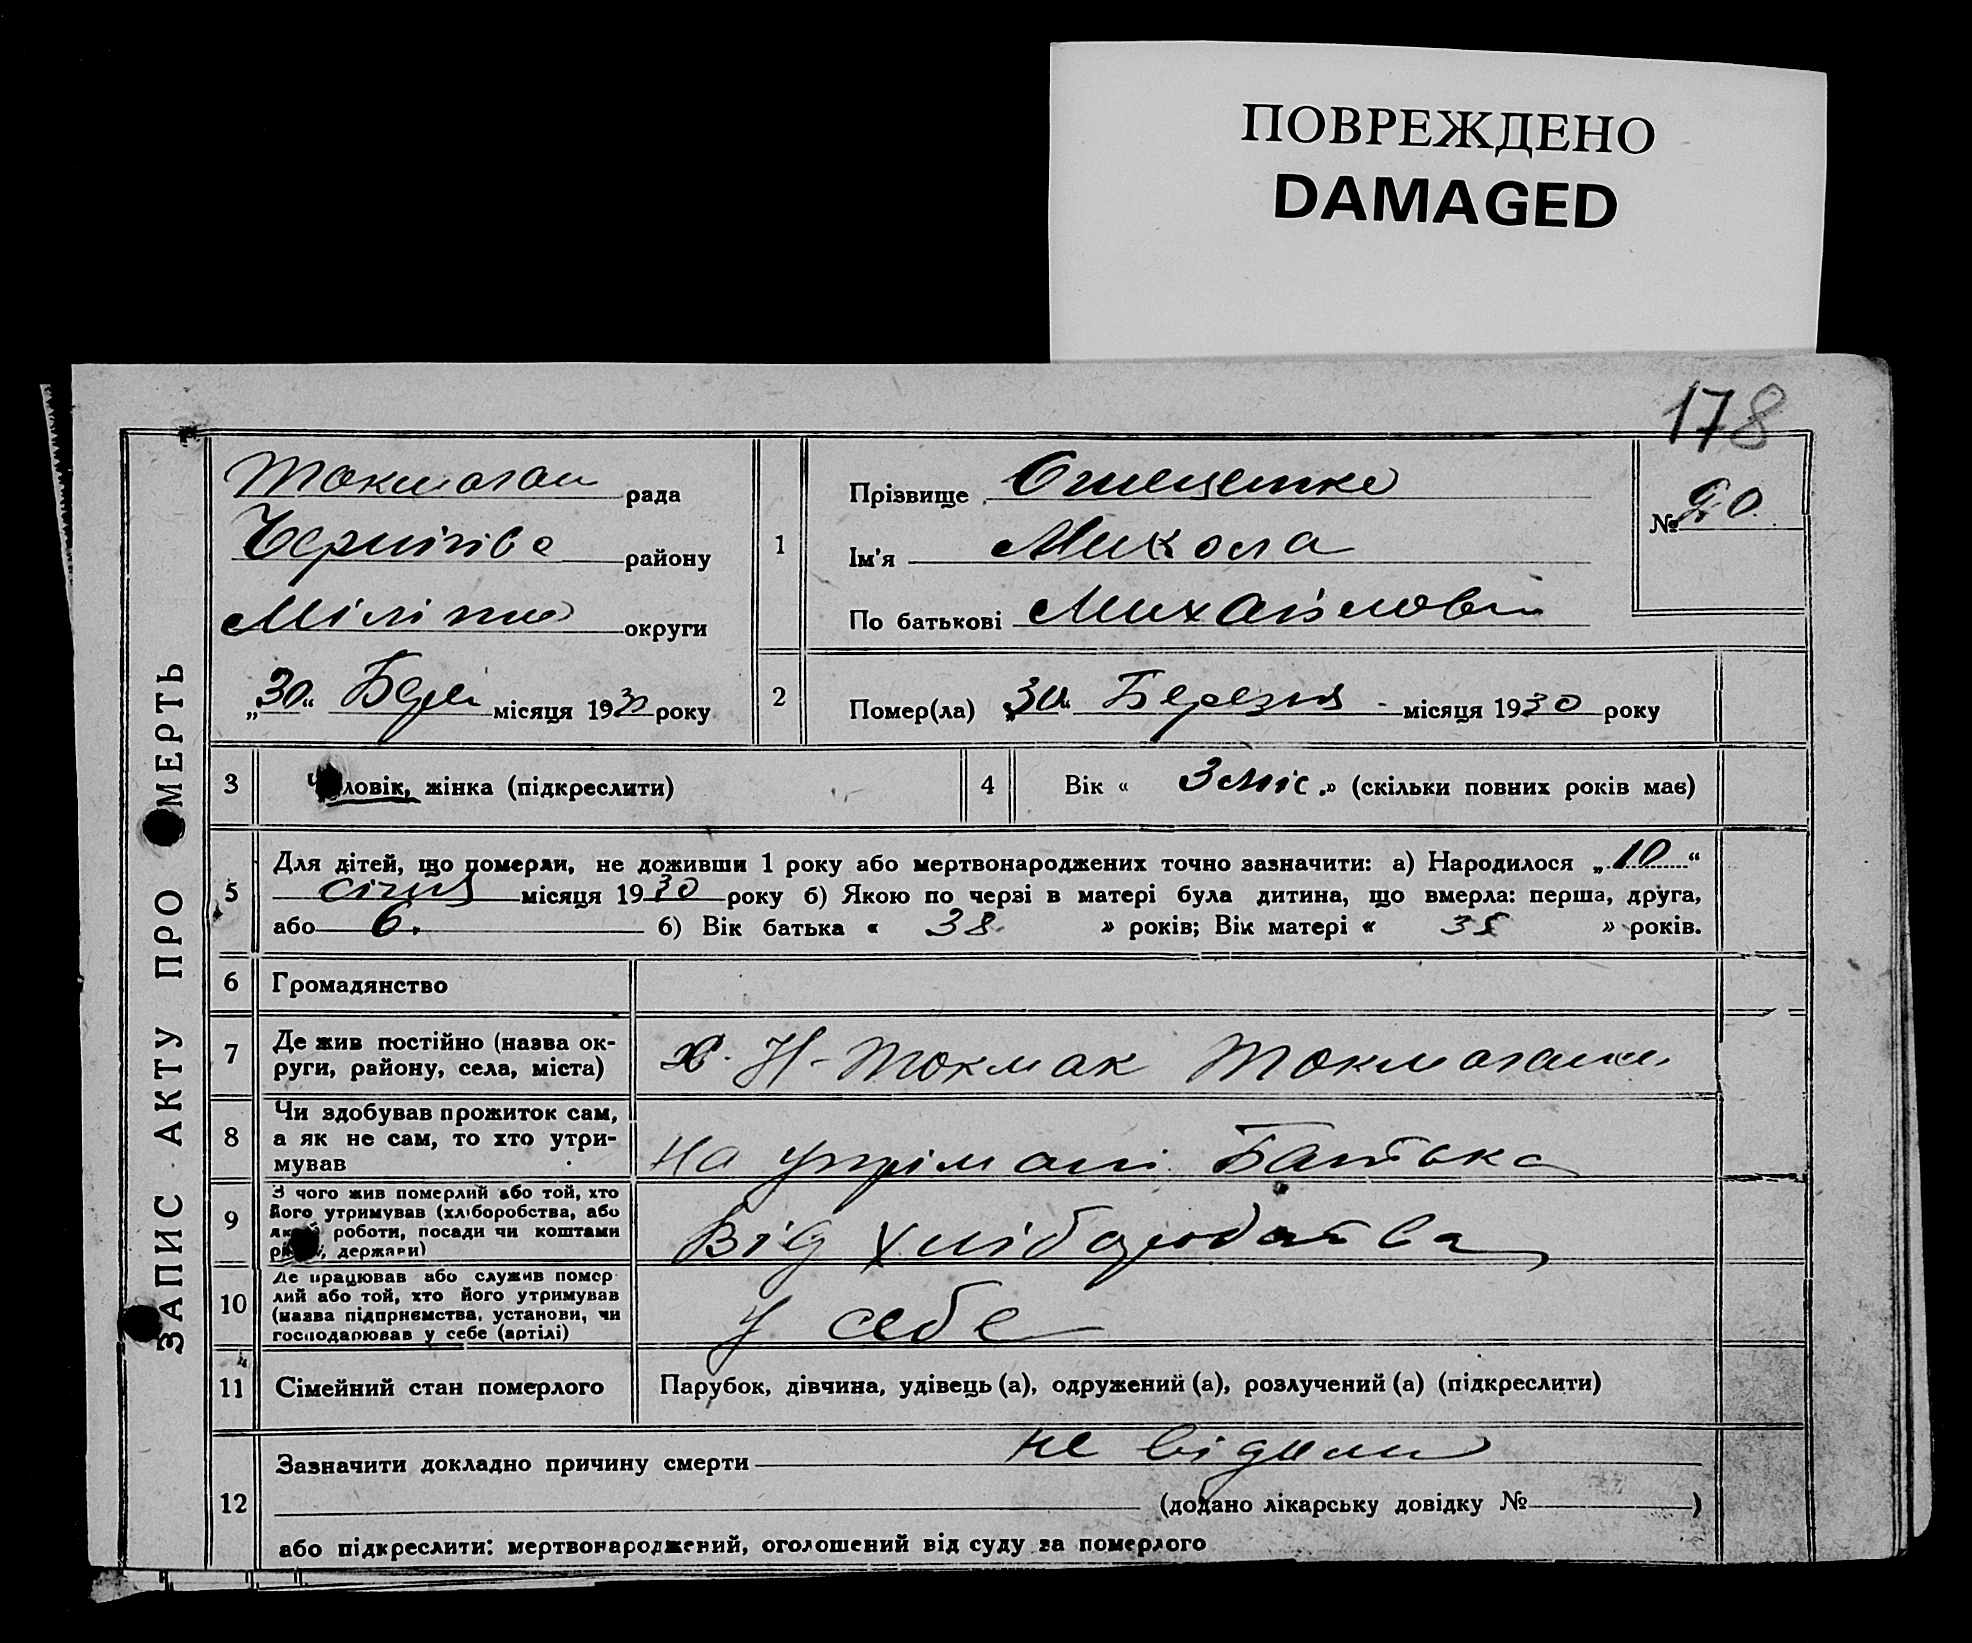 ПОВРЕЖДЕНО
DAMAGED
178
ЗАПИС АКТУ ПРО СМЕРТЬ
рада
району
Міліт округи
„30“ Бере місяця 1930 року
1
Прізвище
Ім'я Микола
По батькові Михайлов
№
2
Помер(ла) „30“ Березня місяця 1930 року
3
Чоловік, жінка (підкреслити)
4
Вік « 3 міс. » (скільки повних років має)
5
Для дітей, що померли, не доживши 1 року або мертвонароджених точно зазначити: а) Народилося „10“
січня місяця 1930 року б) Якою по черзі в матері була дитина, що вмерла: перша, друга,
або 6. б) Вік батька « 38 » років; Вік матері « » років.
6
Громадянство
7
Де жив постійно (назва ок-
руги, району, села, міста)
х. Н-Токмак
8
Чи здобував прожиток сам,
а як не сам, то хто утри-
мував
На утрімані Батька
9
З чого жив померлий або той, хто
його утримував (хліборобства, або
якої роботи, посади чи коштами
родичів, держави)
Від хліборобства
10
Де працював або служив помер
лий або той, хто його утримував
(назва підприємства, установи, чи
господарював у себе (артілі)
У себе
11
Сімейний стан померлого
Парубок, дівчина, удівець (а), одружений (а), розлучений (а) (підкреслити)
12
Зазначити докладно причину смерти не відома
(додано лікарську довідку № )
або підкреслити: мертвонароджений, оголошений від суду за померлого